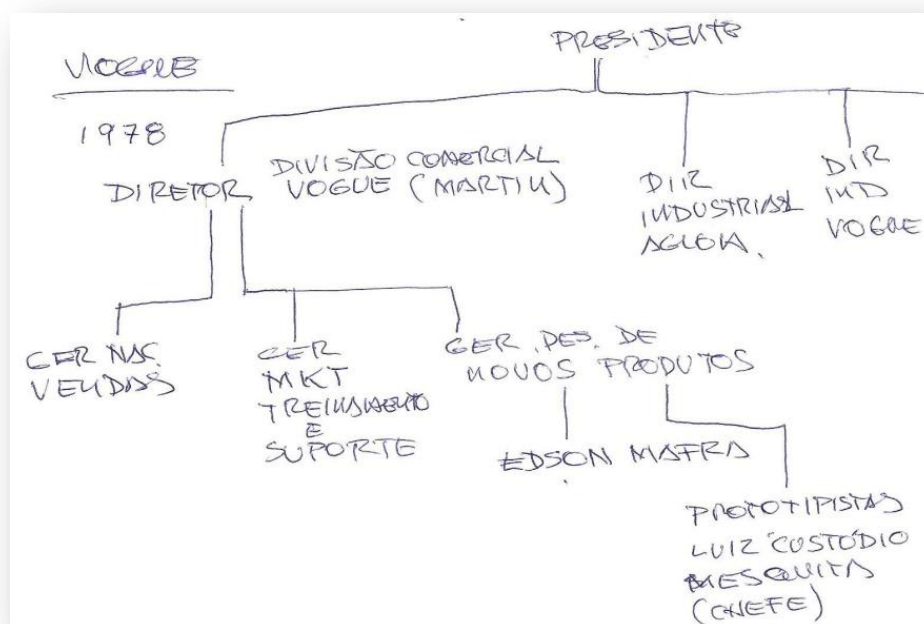 PRESIDENTE
VOGUE
1978
DIRETOR
DIVISÃO COMERCIAL
VOGUE (MARTIN)
DIR
INDUSTRIAL
DIR
IND
VOGUE
GER NAC.
VENDAS
GER
MKT
TREINAMENTO
E
SUPORTE
GER. DES. DE
NOVOS PRODUTOS
EDSON MAFRA
PROTOTIPISTAS
LUIZ CUSTÓDIO
MESQUITA
(CHEFE)